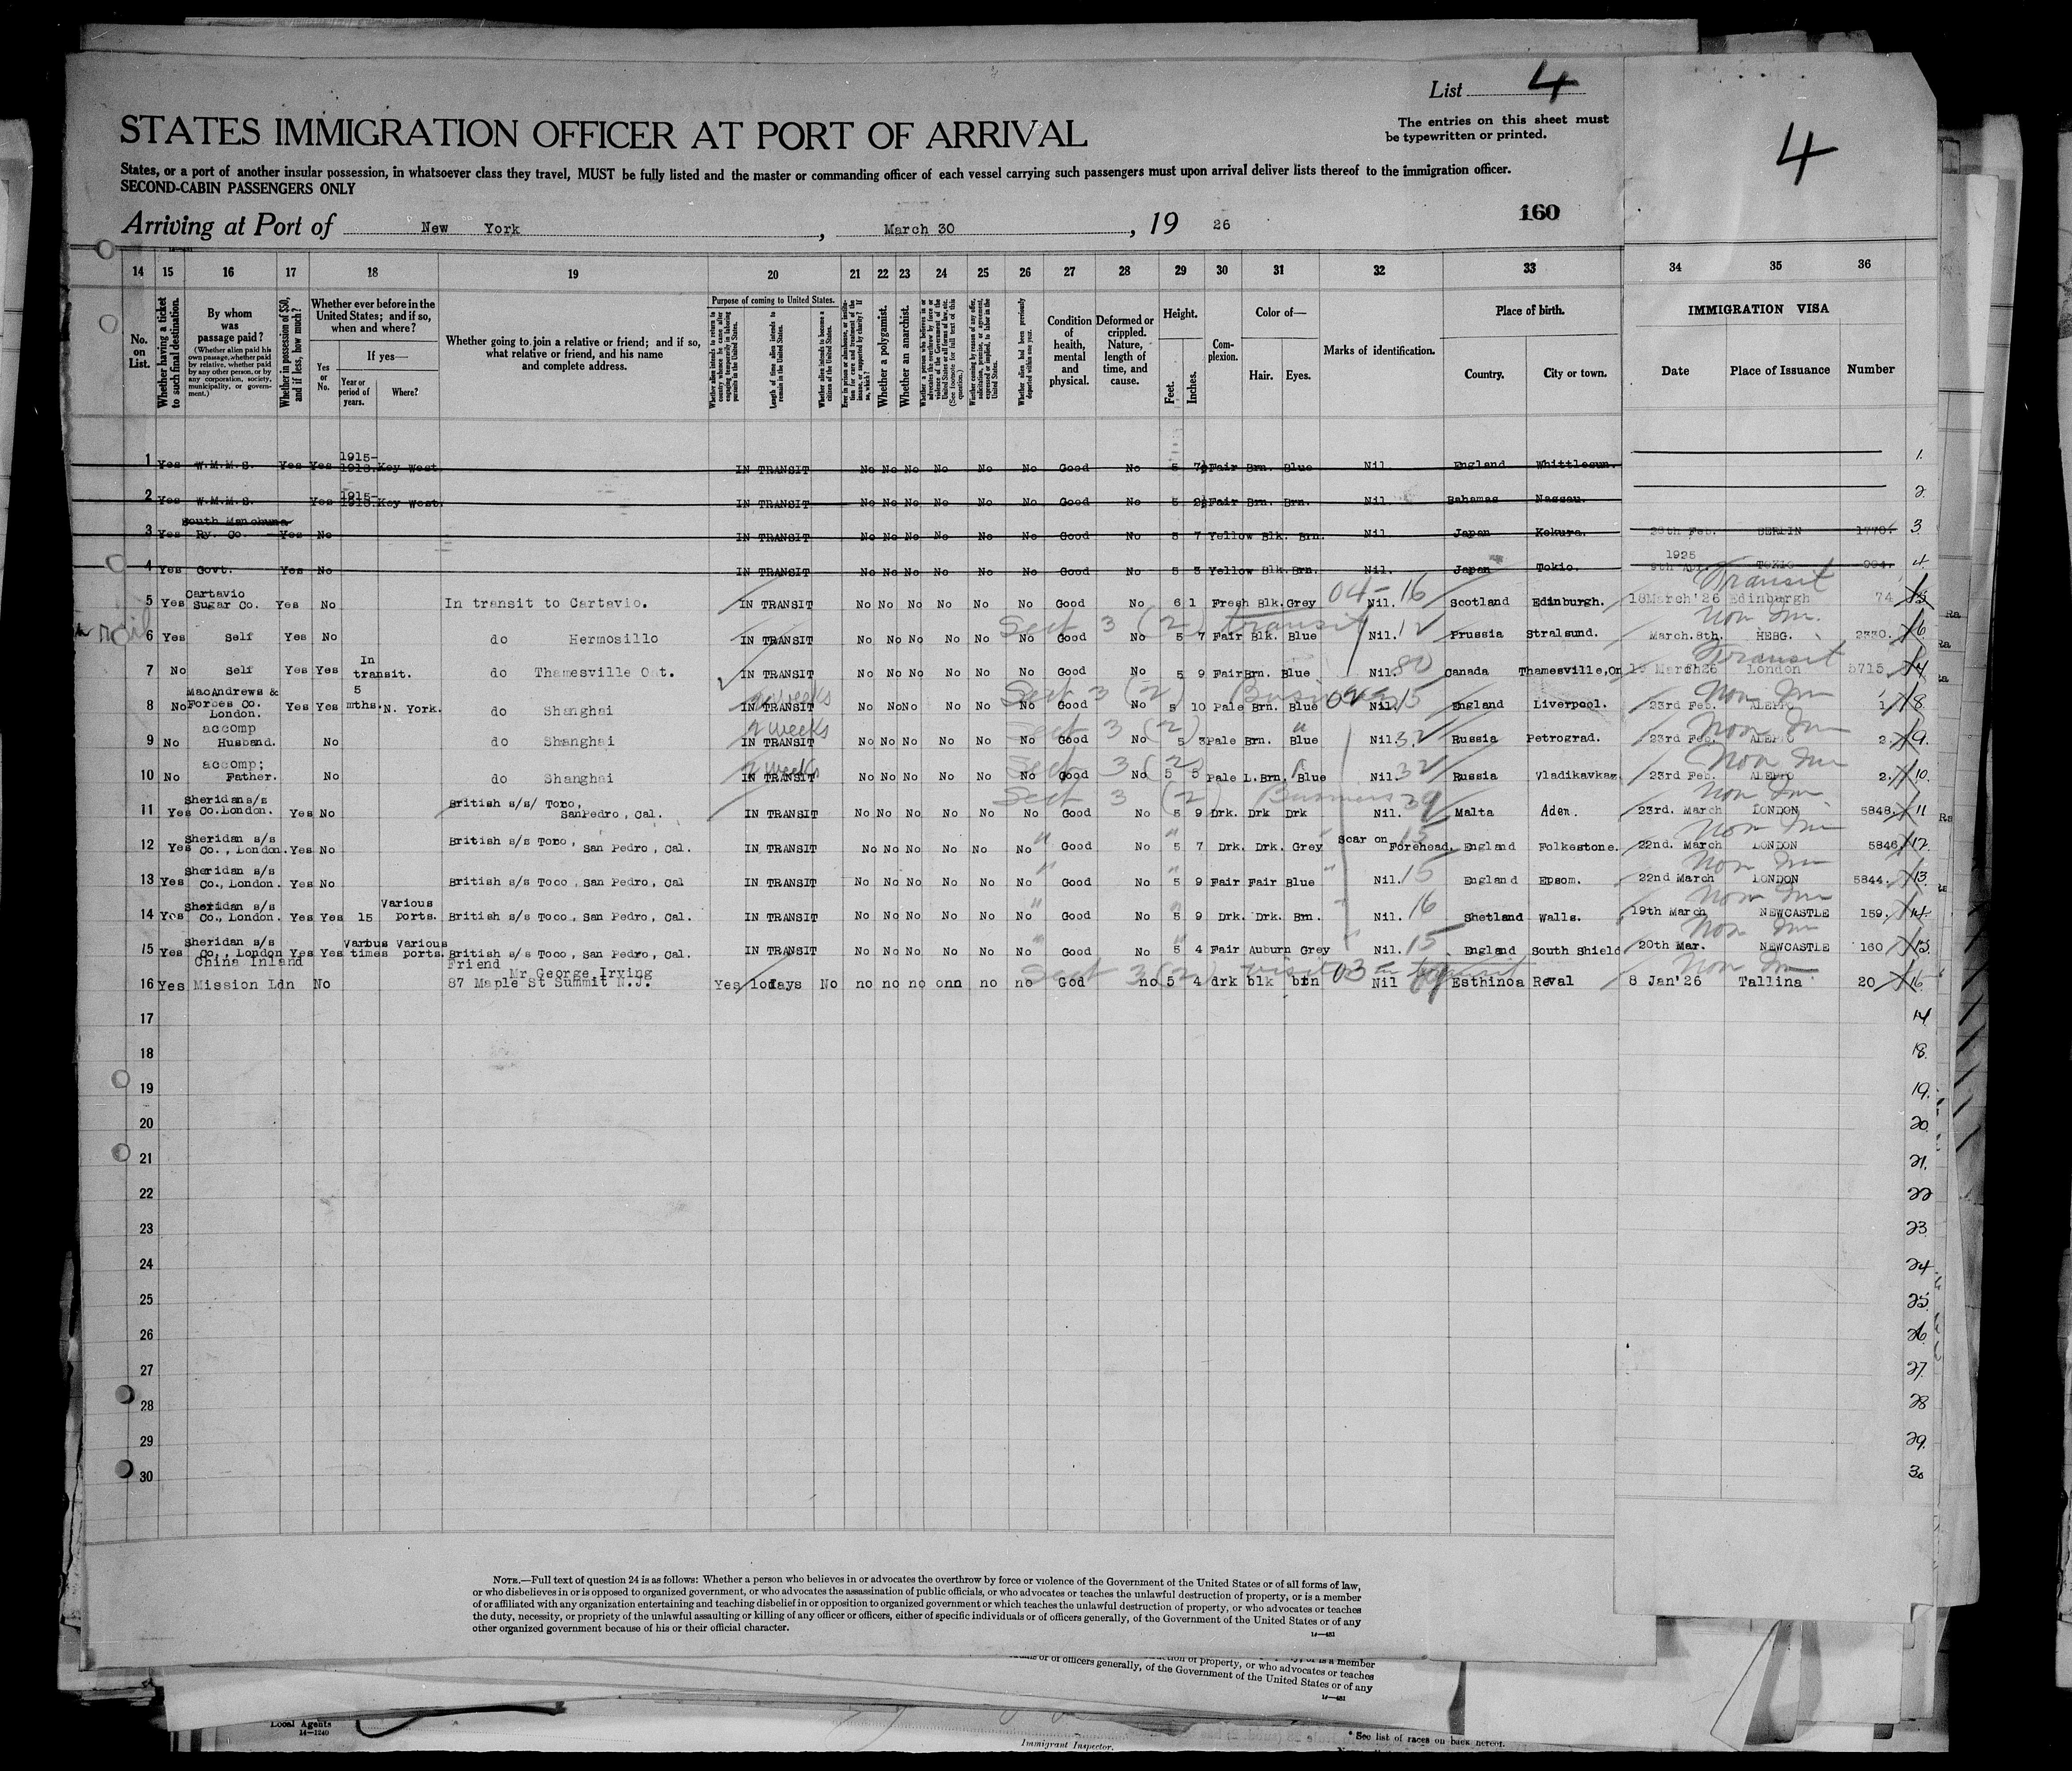 List 4
The entries on this sheet must
be typewritten or printed.
4
STATES IMMIGRATION OFFICER AT PORT OF ARRIVAL
States, or a port of another insular possession, in whatsoever class they travel, MUST be fully listed and the master or commanding officer of each vessel carrying such passengers must upon arrival deliver lists thereof to the immigration officer.
SECOND-CABIN PASSENGERS ONLY
160
Arriving at Port of New York, March 30, 19 26
14 15 16 17 18 19 20 21 22 23 24 25 26 27 28 29 30 31 32 33 34 35 36
No. on List.
Whether having a ticket to such final destination.
By whom was passage paid?
(Whether alien paid his own passage, whether paid by relative, whether paid by any other person, or by any corporation, society, municipality, or government.)
Whether in possession of $50, and if less, how much?
Whether ever before in the United States; and if so, when and where?
Yes or No.
If yes—
Year or period of years.
Where?
Whether going to join a relative or friend; and if so, what relative or friend, and his name and complete address.
Purpose of coming to United States.
Whether alien intends to return to country whence he came after engaging temporarily in laboring pursuits in the United States.
Length of time alien intends to remain in the United States.
Whether alien intends to become a citizen of the United States.
Whether a polygamist.
Whether an anarchist.
Whether alien had been previously deported within one year.
Condition of health, mental and physical.
Deformed or crippled. Nature, length of time, and cause.
Height.
Feet.
Inches.
Complexion.
Color of—
Hair.
Eyes.
Marks of identification.
Place of birth.
Country.
City or town.
IMMIGRATION VISA
Date
Place of Issuance
Number
1 Yes W.M.M.S. Yes Yes 1915-1918. Key West. IN TRANSIT No No No No No No Good No 5 7½ Fair Brn. Blue Nil. England 1.
2 Yes W.M.M.S. Yes 1915-1918. Key West. IN TRANSIT No No No No No No Good No 5 Fair Brn. Brn. Nil Bahamas Nassau. 2
3 Yes South Manchuria Ry. Co. Yes No IN TRANSIT No No No No No No Good No 5 7 Yellow Blk. Brn. Nil Japan Kokura. 28th Feb. BERLIN 3
4 Yes Govt. Yes No IN TRANSIT No No No No No No Good No 5 3 Yellow Blk. Brn. Nil. Japan Tokio. 1925 9th Apr. TOKIO 4
5 Yes Cartavio Sugar Co. Yes No In transit to Cartavio. IN TRANSIT No No No No No No Good No 6 1 Fresh Blk. Grey 04-16 Nil. Scotland Edinburgh. 18March'26 Edinburgh 74 Transit 5
6 Yes Self Yes No do Hermosillo IN TRANSIT No No No No No No Sect 3 (2) transit Good No 5 7 Fair Blk. Blue Nil. Prussia Stralsund. March.8th. HEBG. 2330. Non Im. 6
7 No Self Yes Yes In transit. do Thamesville Ont. IN TRANSIT No No No No No No Good No 5 9 Fair Brn. Blue Nil. 80 Canada Thamesville,On March26 London 5715 Transit 7
8 No MacAndrews & Forbes Co. London. Yes Yes 5 mths. N. York. do Shanghai IN TRANSIT 2 weeks No No No No No No Sect 3 (2) Business Good No 5 10 Pale Brn. Blue Nil. 15 England Liverpool. 23rd Feb. ALEPPO 1 Non Im 8
9 No accomp Husband. No do Shanghai IN TRANSIT 2 weeks No No No No No No Sect 3 (2) " Good No 5 3 Pale Brn. Blue Nil. 32 Russia Petrograd. 23rd Feb. ALEPPO 2. Non Im 9.
10 No accomp; Father. No do Shanghai IN TRANSIT 2 weeks No No No No No No Sect 3 (2) " Good No 5 5 Pale L.Brn. Blue Nil. 32 Russia Vladikavkaz. 23rd Feb. ALEPPO 2. Non Im 10.
11 Yes Sheridan s/s Co. London. Yes No British s/s/ Toco, SanPedro, Cal. IN TRANSIT No No No No No No Sect 3 (2) Business Good No 5 9 Drk. Drk Drk Nil. 39 Malta Aden. 23rd. March LONDON 5848. Non Im. 11
12 Yes Sheridan s/s Co., London. Yes No British s/s Toco, San Pedro, Cal. IN TRANSIT No No No No No No " Good No 5 7 Drk. Drk. Grey Scar on Forehead. 15 England Folkestone. 22nd. March LONDON 5846. Non Im 12.
13 Yes Sheridan s/s Co., London. Yes No British s/s Toco, San Pedro, Cal IN TRANSIT No No No No No No " Good No 5 9 Fair Fair Blue Nil. 15 England Epsom. 22nd March LONDON 5844. Non Im 13.
14 Yes Sheridan s/s Co., London. Yes Yes 15 Various ports. British s/s Toco, San Pedro, Cal. IN TRANSIT No No No No No No " Good No 5 9 Drk. Drk. Brn. Nil. 16 Shetland Walls. 19th March NEWCASTLE 159. Non Im 14.
15 Yes Sheridan s/s Co., London Yes Yes Various times Various ports. British s/s Toco, San Pedro, Cal. IN TRANSIT No No No No No No " Good No 5 4 Fair Auburn Grey Nil. 15 England South Shield 20th Mar. NEWCASTLE 160 Non Im 15
16 Yes China Inland Mission Ldn No Friend Mr George Irving 87 Maple St Summit N.J. Yes 10days No no no no onn no no Sect 3(2) visit 03 in transit God no 5 4 drk blk brn Nil Esthinoa Reval 8 Jan'26 Tallina 20 Non Im 16
17 17
18 18.
19 19.
20 20
21 21.
22 22
23 23
24 24
25 25
26 26
27 27.
28 28
29 29.
30 30
NOTE.—Full text of question 24 is as follows: Whether a person who believes in or advocates the overthrow by force or violence of the Government of the United States or of all forms of law,
or who disbelieves in or is opposed to organized government, or who advocates the assassination of public officials, or who advocates or teaches the unlawful destruction of property, or is a member
of or affiliated with any organization entertaining and teaching disbelief in or opposition to organized government or which teaches the unlawful destruction of property, or who advocates or teaches
the duty, necessity, or propriety of the unlawful assaulting or killing of any officer or officers, either of specific individuals or of officers generally, of the Government of the United States or of any
other organized government because of his or their official character.
14—481
of property, or who advocates or teaches
of officers generally, of the Government of the United States or of any
14—481
Local Agents
14—1240
Immigrant Inspector.
* See list of races on back hereof.